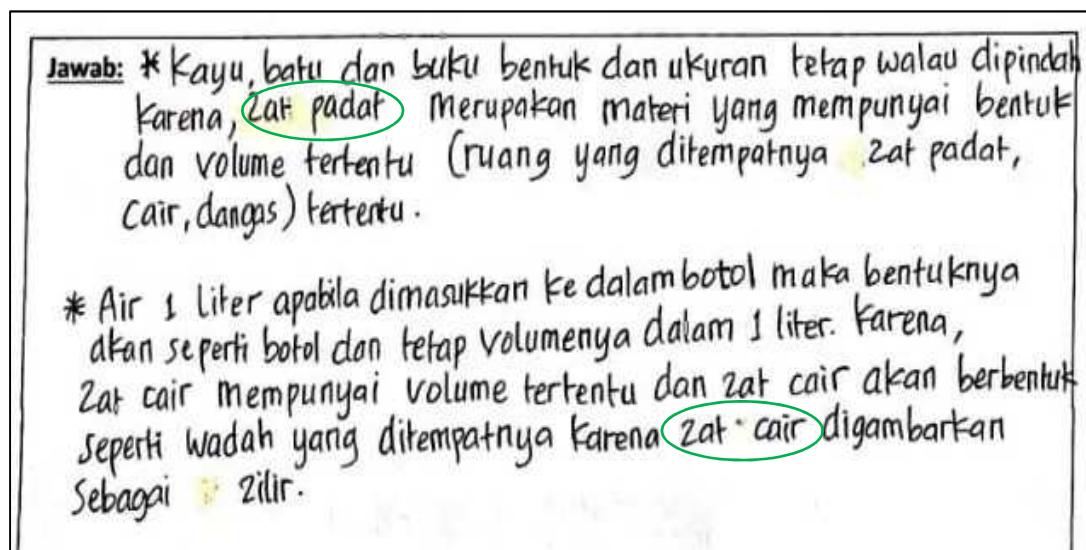 Jawab: * Kayu, batu dan buku bentuk dan ukuran tetap walau dipindah
karena, zat padat merupakan materi yang mempunyai bentuk
dan volume tertentu (ruang yang ditempatnya zat padat,
cair, dangas) tertentu.
* Air 1 liter apabila dimasukkan ke dalam botol maka bentuknya
akan seperti botol dan tetap volumenya dalam 1 liter. Karena,
zat cair mempunyai volume tertentu dan zat cair akan berbentuk
seperti wadah yang ditempatnya karena zat cair digambarkan
sebagai zilir.